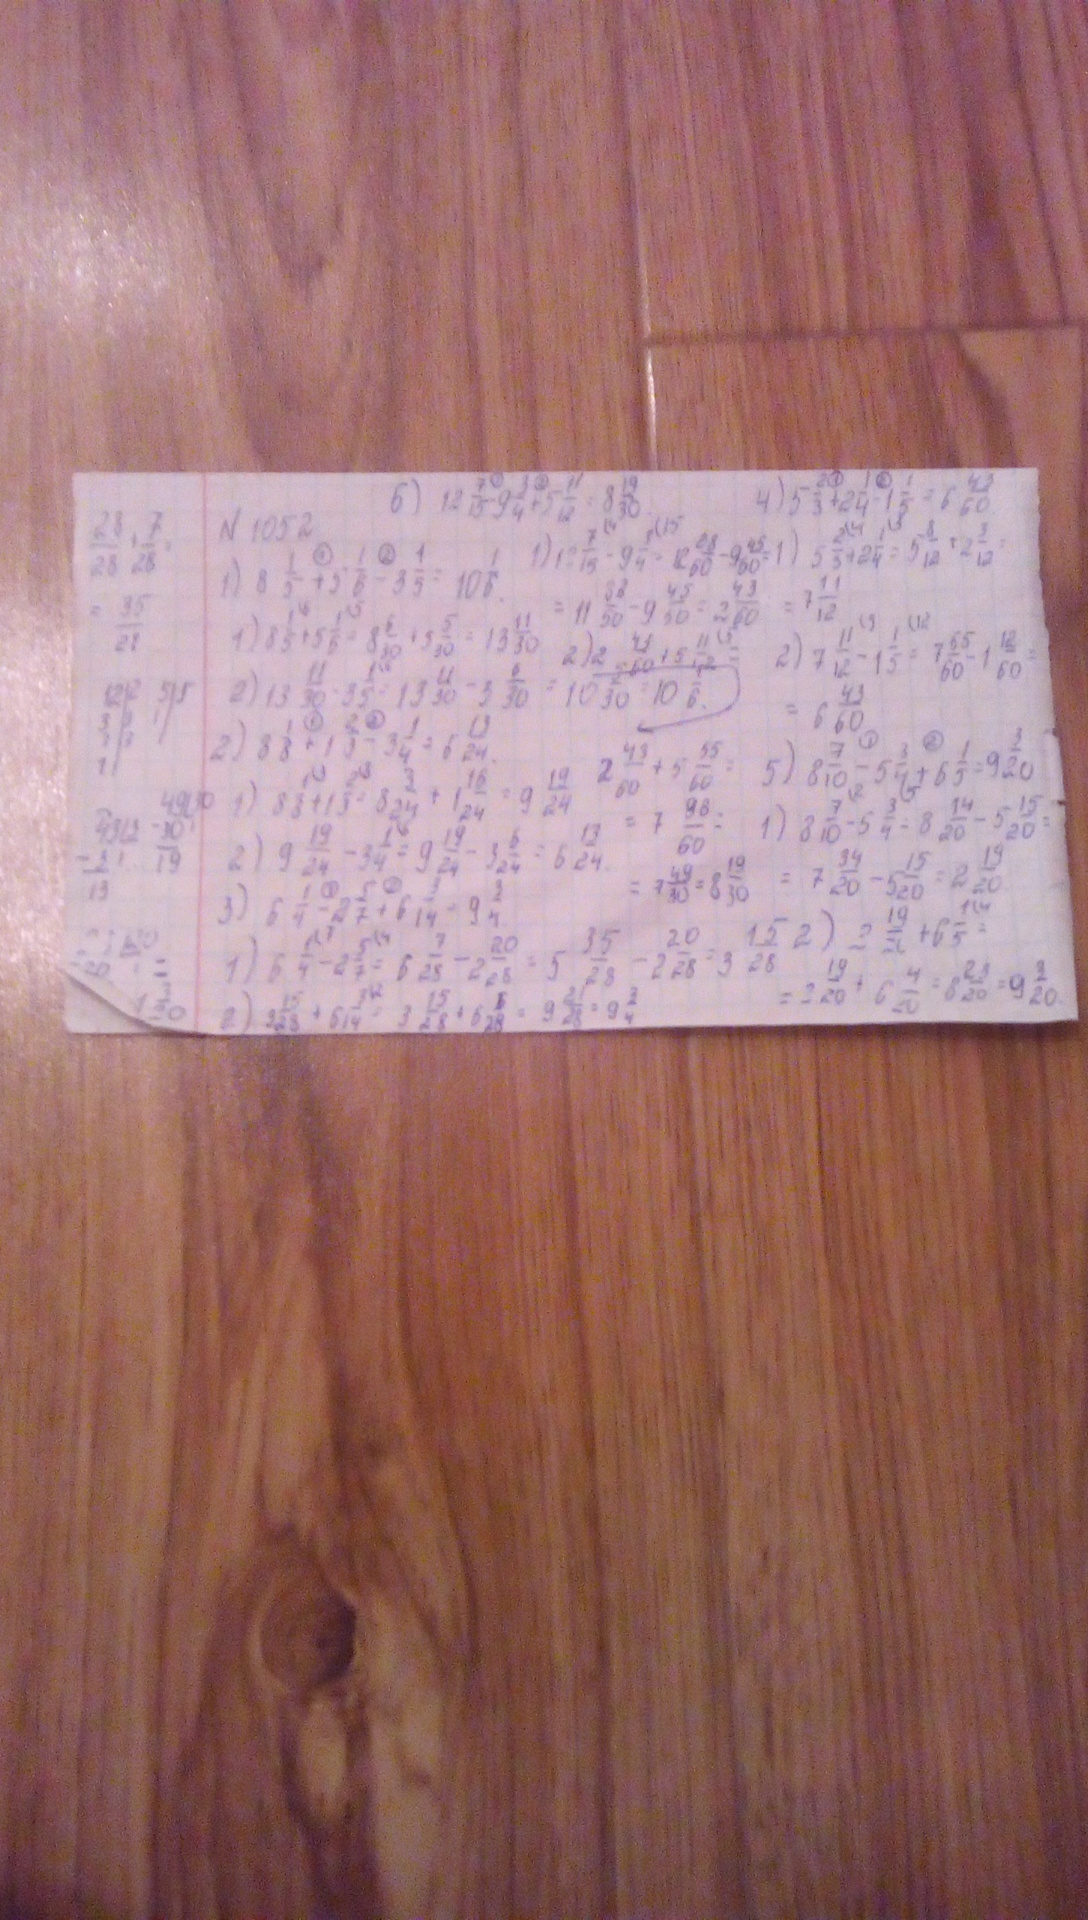 N 1052
1) 8 1/5 + 5 1/6 - 3 1/5 = 10 1/6.
1) 8 1/5 + 5 1/6 = 8 6/30 + 5 5/30 = 13 11/30
2) 13 11/30 - 3 1/5 = 13 11/30 - 3 6/30 = 10 5/30 = 10 1/6.
2) 8 1/8 + 1 2/3 - 3 1/4 = 6 13/24.
1) 8 1/8 + 1 2/3 = 8 3/24 + 1 16/24 = 9 19/24
2) 9 19/24 - 3 1/4 = 9 19/24 - 3 6/24 = 6 13/24.
3) 6 1/4 - 2 5/7 + 6 3/14 = 9 3/4
1) 6 1/4 - 2 5/7 = 6 7/28 - 2 20/28 = 5 35/28 - 2 20/28 = 3 15/28
2) 3 15/28 + 6 3/14 = 3 15/28 + 6 6/28 = 9 21/28 = 9 3/4
6) 12 7/15 - 9 3/4 + 5 11/12 = 8 19/30.
= 2 43/60
2) 2 43/60 + 5 11/12 =
2 43/60 + 5 55/60 =
= 7 98/60 =
= 7 49/30 = 8 19/30
4) 5 2/3 + 2 1/4 - 1 1/5 = 6 43/60.
1) 5 2/3 + 2 1/4 = 5 8/12 + 2 3/12 =
= 7 11/12
2) 7 11/12 - 1 1/5 = 7 55/60 - 1 12/60 =
= 6 43/60
5) 8 7/10 - 5 3/4 + 6 1/5 = 9 3/20
1) 8 7/10 - 5 3/4 = 8 14/20 - 5 15/20 =
= 7 34/20 - 5 15/20 = 2 19/20
2) 2 19/20 + 6 1/5 =
= 2 19/20 + 6 4/20 = 8 23/20 = 9 3/20.
28/28 + 7/28 =
= 35/28